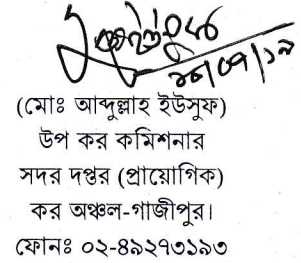 (মোঃ আব্দুল্লাহ ইউসুফ)
উপ কর কমিশনার
সদর দপ্তর (প্রায়োগিক)
কর অঞ্চল-গাজীপুর।
ফোনঃ ০২-৪৯২৭৩১৯৩